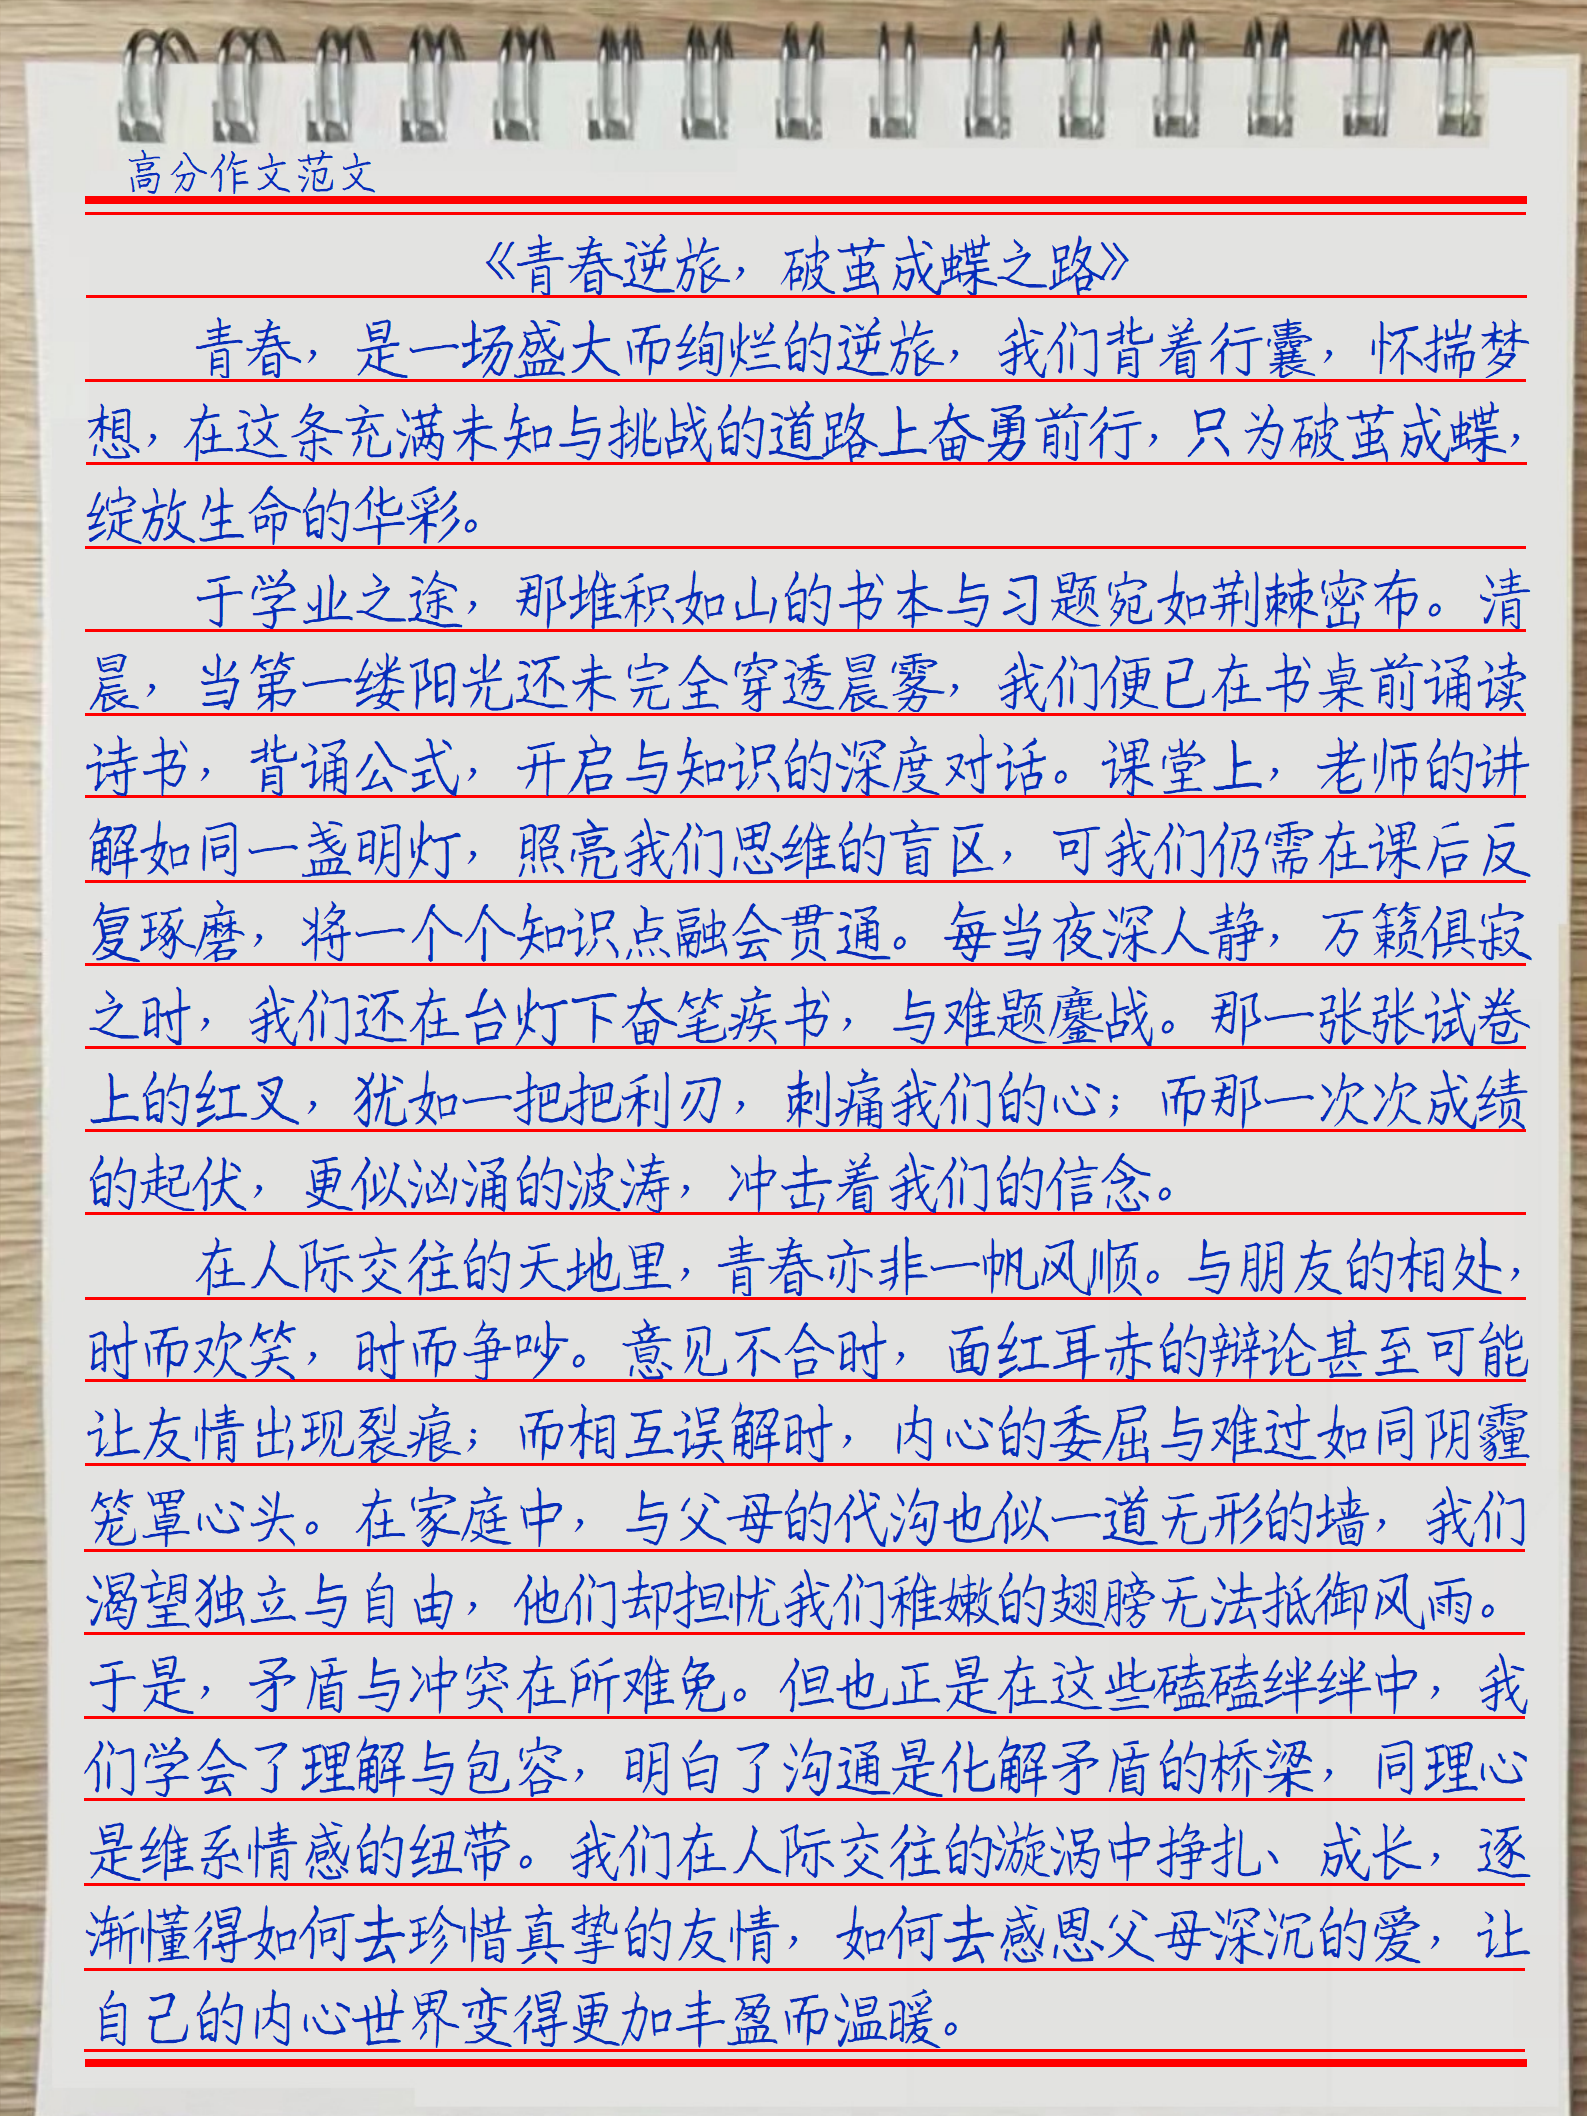 高分作文范文
《青春逆旅，破茧成蝶之路》
青春，是一场盛大而绚烂的逆旅，我们背着行囊，怀揣梦
想，在这条充满未知与挑战的道路上奋勇前行，只为破茧成蝶，
绽放生命的华彩。
于学业之途，那堆积如山的书本与习题宛如荆棘密布。清
晨，当第一缕阳光还未完全穿透晨雾，我们便已在书桌前诵读
诗书，背诵公式，开启与知识的深度对话。课堂上，老师的讲
解如同一盏明灯，照亮我们思维的盲区，可我们仍需在课后反
复琢磨，将一个个知识点融会贯通。每当夜深人静，万籁俱寂
之时，我们还在台灯下奋笔疾书，与难题鏖战。那一张张试卷
上的红叉，犹如一把把利刃，刺痛我们的心；而那一次次成绩
的起伏，更似汹涌的波涛，冲击着我们的信念。
在人际交往的天地里，青春亦非一帆风顺。与朋友的相处，
时而欢笑，时而争吵。意见不合时，面红耳赤的辩论甚至可能
让友情出现裂痕；而相互误解时，内心的委屈与难过如同阴霾
笼罩心头。在家庭中，与父母的代沟也似一道无形的墙，我们
渴望独立与自由，他们却担忧我们稚嫩的翅膀无法抵御风雨。
于是，矛盾与冲突在所难免。但也正是在这些磕磕绊绊中，我
们学会了理解与包容，明白了沟通是化解矛盾的桥梁，同理心
是维系情感的纽带。我们在人际交往的漩涡中挣扎、成长，逐
渐懂得如何去珍惜真挚的友情，如何去感恩父母深沉的爱，让
自己的内心世界变得更加丰盈而温暖。